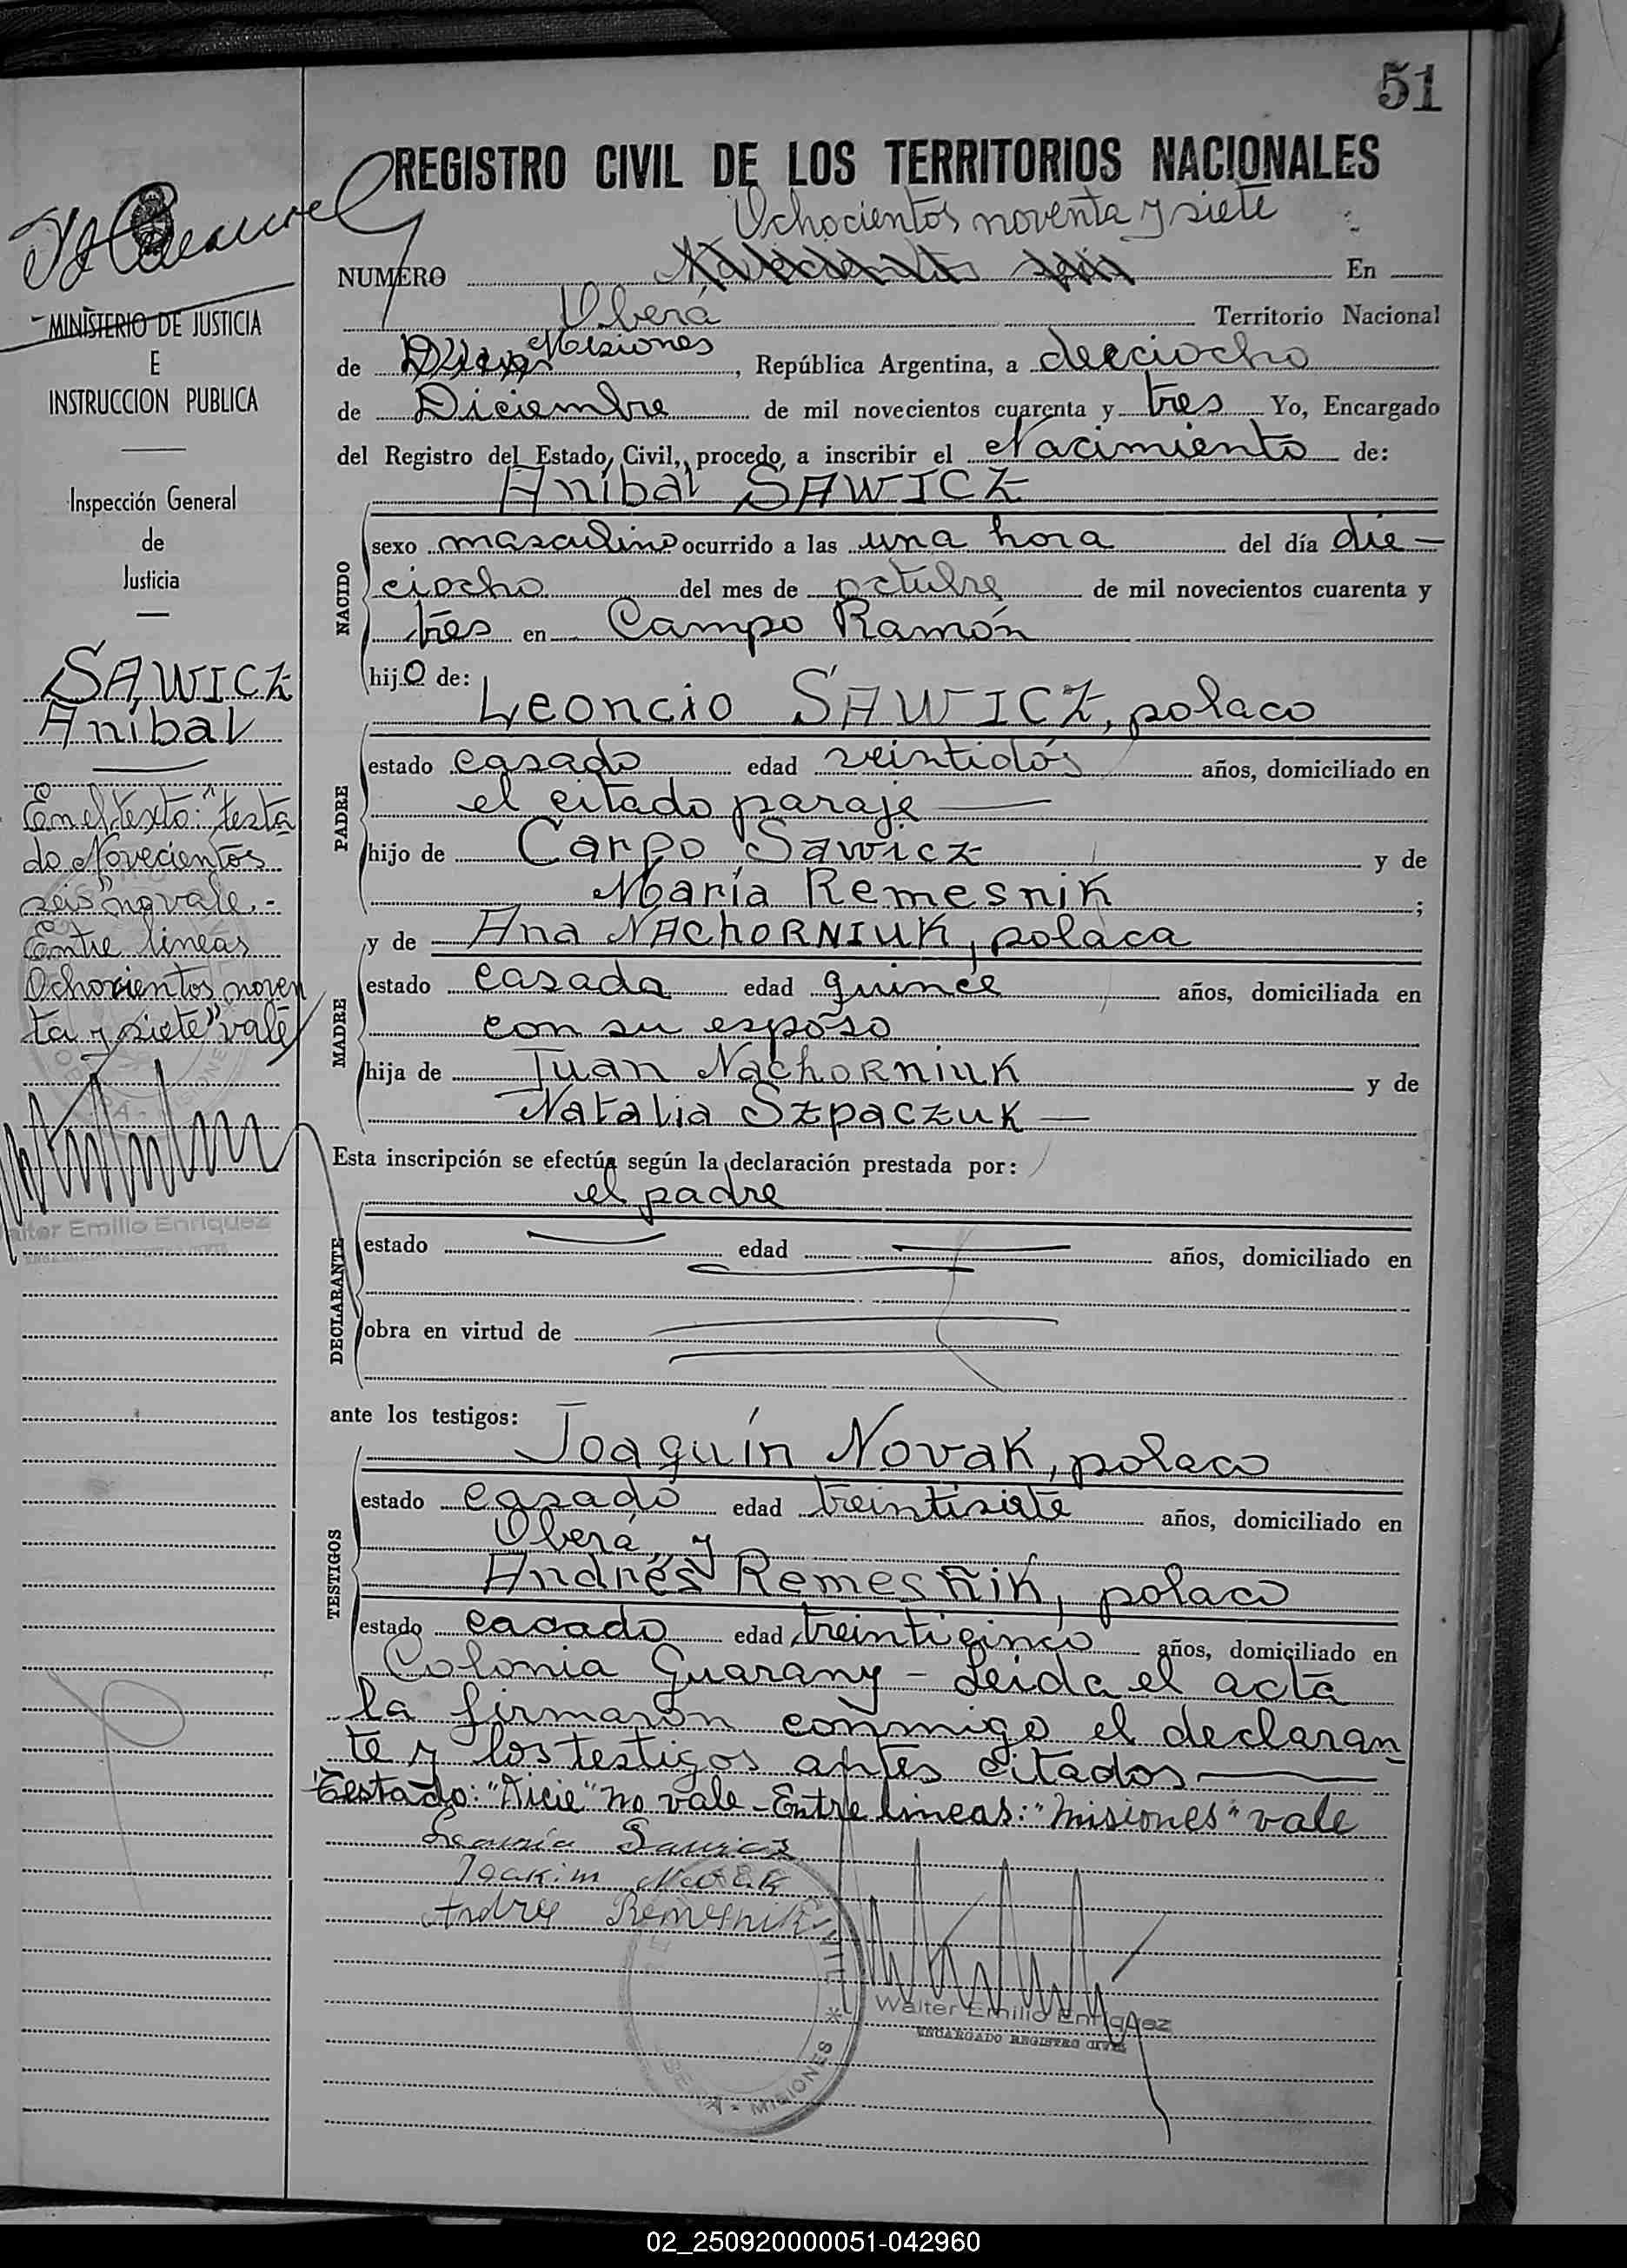 51
REGISTRO CIVIL DE LOS TERRITORIOS NACIONALES
Ochocientos noventa y siete
NUMERO Novecientos seis En
Oberá Territorio Nacional
de Dicie Misiones, República Argentina, a dieciocho
de Diciembre de mil novecientos cuarenta y tres Yo, Encargado
del Registro del Estado Civil, procedo a inscribir el Nacimiento de:
Aníbal SAWICZ
NACIDO
sexo masculino ocurrido a las una hora del día die-
ciocho del mes de octubre de mil novecientos cuarenta y
tres en Campo Ramón
hijo de:
Leoncio SAWICZ, polaco
PADRE
estado casado edad veintidós años, domiciliado en
el citado paraje
hijo de Carpo Sawicz y de
María Remesnik ;
y de Ana NAChORNIUK, polaca
MADRE
estado casada edad quince años, domiciliada en
con su esposo
hija de Juan Nachorniuk y de
Natalia Szpaczuk
Esta inscripción se efectúa según la declaración prestada por:
el padre
DECLARANTE
estado edad años, domiciliado en
obra en virtud de
ante los testigos:
Joaquín Novak, polaco
TESTIGOS
estado casado edad treintisiete años, domiciliado en
Oberá y
Andrés Remesñik, polaco
estado casado edad treinticinco años, domiciliado en
Colonia Guarany - Leida el acta
la firmaron conmigo el declaran-
te y los testigos antes citados
Testado: "Dicie" no vale - Entre líneas: "Misiones" vale
Sawicz
Joakim Novak
Andrey Remesnik
Walter Emilio Enriquez
ENCARGADO REGISTRO CIVIL
MISIONES
MINISTERIO DE JUSTICIA
E
INSTRUCCION PUBLICA
Inspección General
de
Justicia
SAWICZ
Aníbal
En el texto: "testa
do Novecientos
seis" no vale.-
Entre líneas
Ochocientos noven
ta y siete" vale
Walter Emilio Enriquez
02_250920000051-042960